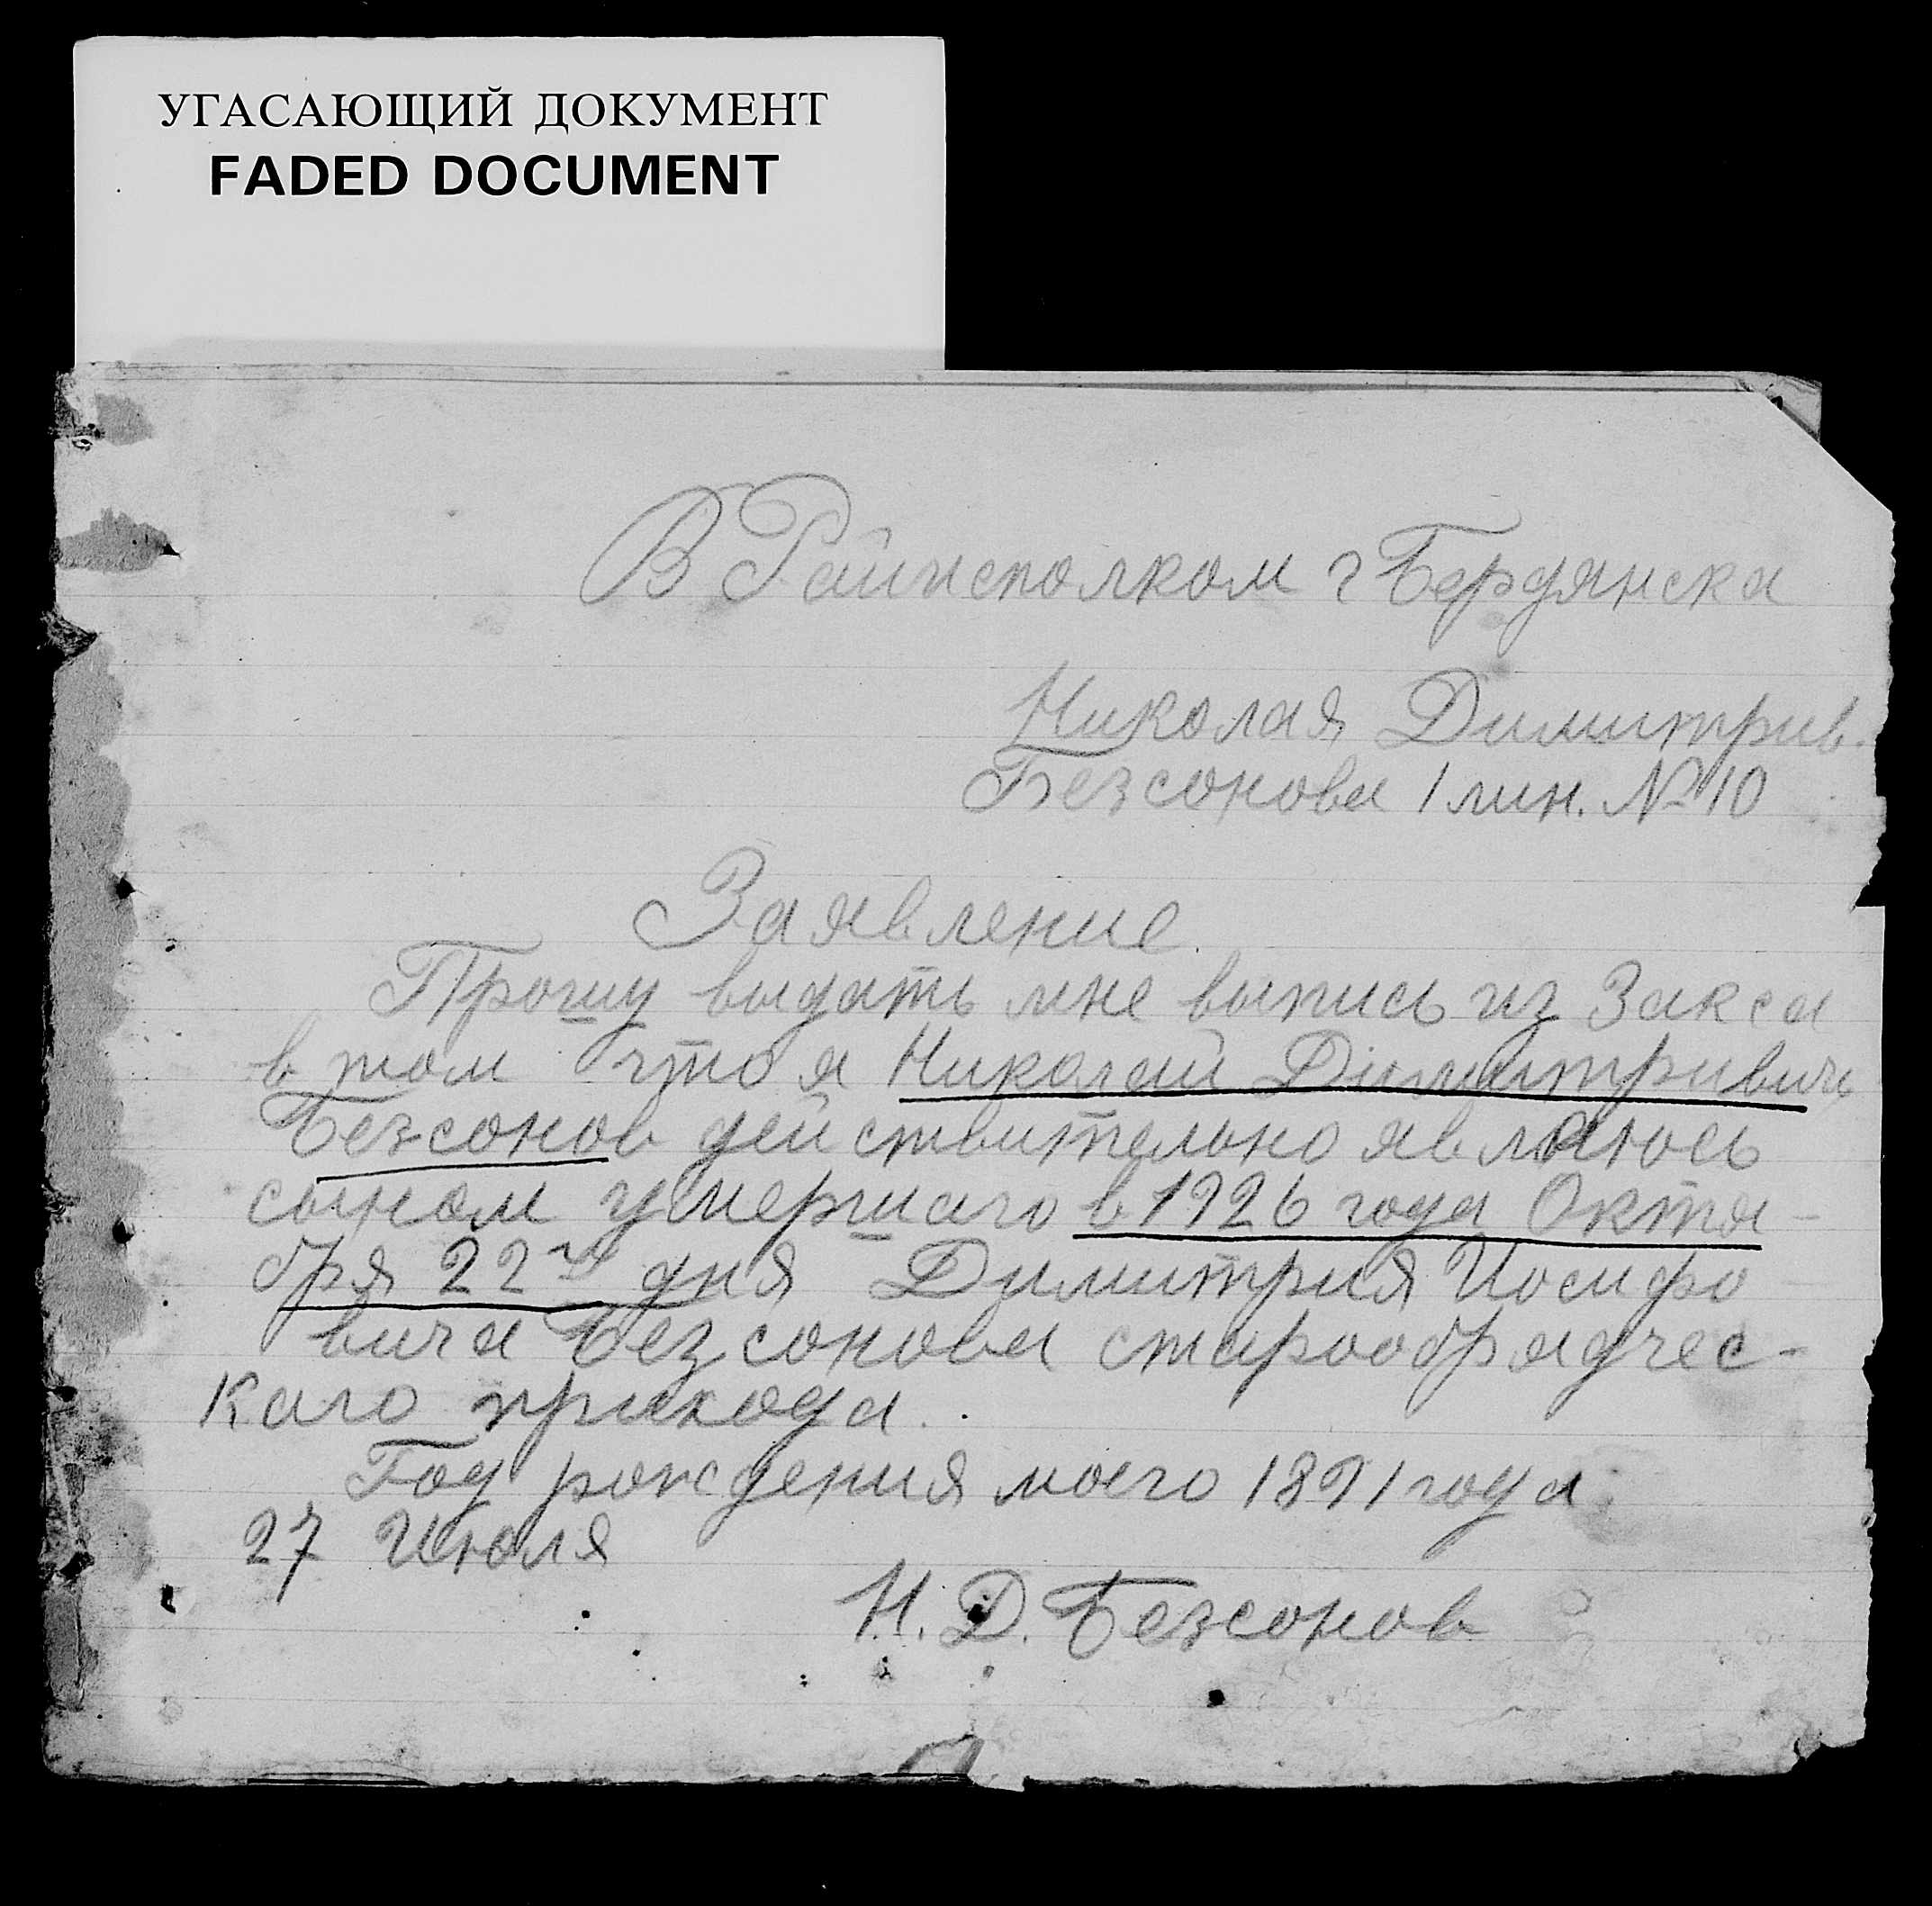 УГАСАЮЩИЙ ДОКУМЕНТ
FADED DOCUMENT
В Райисполком г Бердянска
Николая Димитрив.
Безсонова 1 лин. № 10
Заявление
Прошу выдать мне выпись из Закса
в том что я Николай Димитривич
Безсонов действительно являюсь
сыном умершаго в 1926 года Октя-
бря 22го дня Димитрия Иосифо
вича Безсонова старообрядчес-
Каго прихода.
Год рождения моего 1891 года
27 Июля
Н. Д. Безсонов